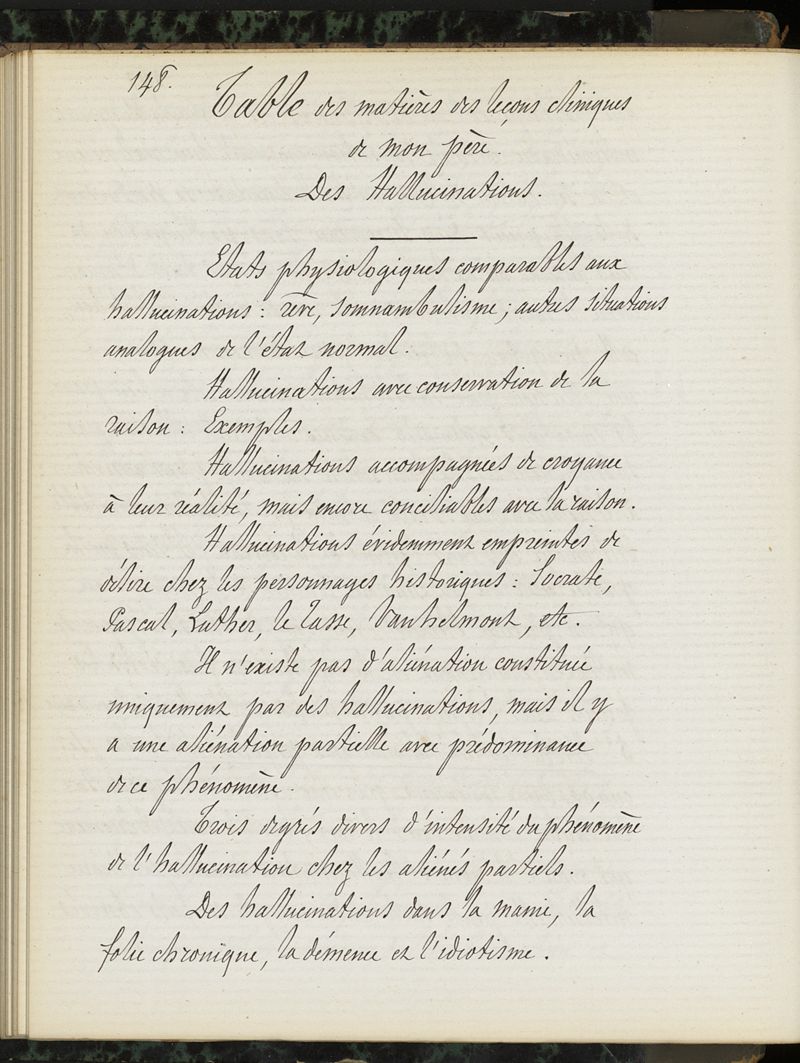 148.
Table des matières des leçons cliniques
de mon père.
Des Hallucinations.
Etats physiologiques comparables aux
hallucinations : rêve, somnambulisme ; autres situations
analogues de l'état normal.
Hallucinations avec conservation de la
raison : Exemples.
Hallucinations accompagnées de croyance
à leur réalité, mais encore conciliables avec la raison.
Hallucinations évidemment empreintes de
délire chez les personnages historiques : Socrate,
Pascal, Luther, le Tasse, Vanhelmont, etc.
Il n'existe pas d'aliénation constituée
uniquement par des hallucinations, mais il y
a une aliénation partielle avec prédominance
de ce phénomène.
Trois degrés divers d'intensité du phénomène
de l'hallucination chez les aliénés partiels.
Des hallucinations dans la manie, la
folie chronique, la démence et l'idiotisme.